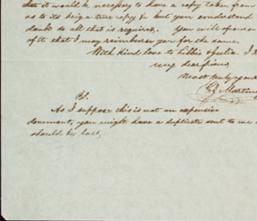 that it would be necessary to have a copy taken from
as to its being a true copy & but you understand
doubt so all that is required. You will
of it that I may reimburse you for the same.
With kind love to Lillie & Julia. I
very dear
Most truly yours
Martin
P.S.
As I suppose this is not an expensive
document, you might have a duplicate sent to me
should be lost,